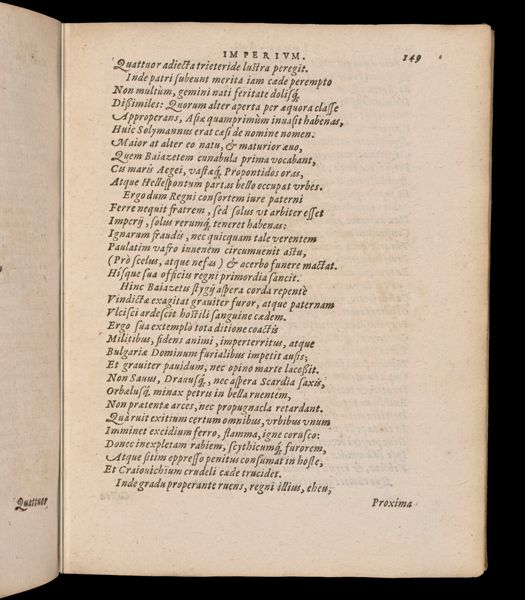 Quattuor
IMPERIVM. 149
Quattuor adiecta trieteride lustra peregit.
Inde patri subeunt merita iam cæde perempto
Non multùm, gemini nati feritate dolisq́;
Dißimiles: Quorum alter aperta per æquora classe
Approperans, Asiæ quamprimùm inuasit habenas,
Huic Solymannus erat cæsi de nomine nomen.
Maior at alter eo natu, & maturior æuo,
Quem Baiazetem cunabula prima vocabant,
Cis maris Aegei, vastæq́; Propontidos oras,
Atque Hellespontum partas bello occupat vrbes.
Ergo dum Regni consortem iure paterni
Ferre nequit fratrem, sed solus vt arbiter esset
Imperij, solus rerumq́; teneret habenas:
Ignarum fraudis, nec quicquam tale verentem
Paulatim vafro iuuenem circumuenit astu,
(Prò scelus, atque nefas) & acerbo funere mactat.
Hisque sua officijs regni primordia sancit.
Hinc Baiazetis stygij aspera corda repentè
Vindictæ exagitat grauiter furor, atque paternam
Vlcisci ardescit hostili sanguine cædem.
Ergo sua extemplò tota ditione coactis
Militibus, fidens animi, imperterritus, atque
Bulgariæ Dominum furialibus impetit ausis;
Et grauiter pauidum, nec opino marte laceßit.
Non Sauus, Drauusq́;, nec aspera Scardia saxis,
Orbælusq́; minax petris in bella ruentem,
Non prætentæ arces, nec propugnacla retardant.
Quà ruit exitium certum omnibus, vrbibus vnum
Imminet excidium ferro, flamma, igne corusco:
Donec inexpletam rabiem, scythicumq́; furorem,
Atque sitim oppresso penitus consumat in hoste,
Et Craiouichium crudeli cæde trucidet.
Inde gradu properante ruens, regni illius, eheu,
Proxima